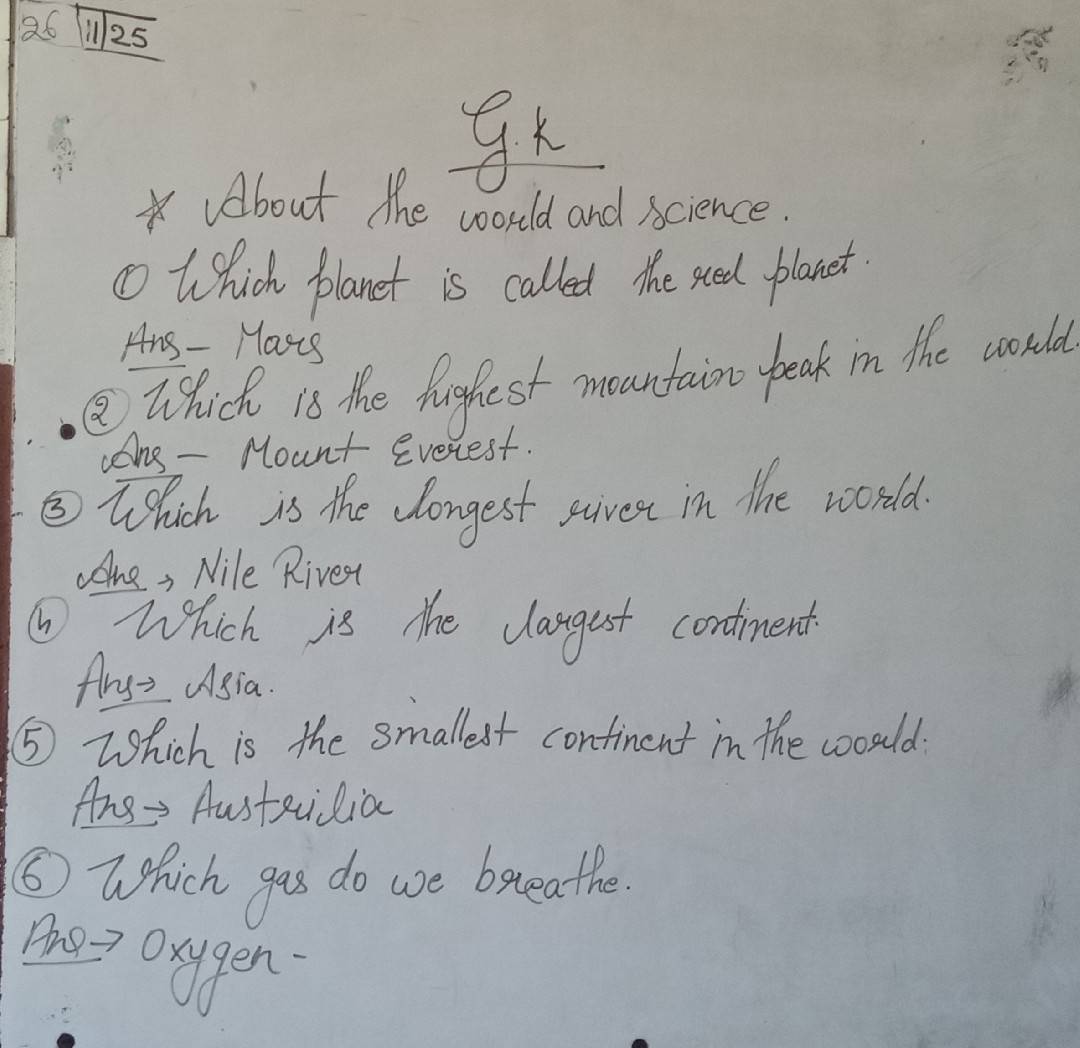 26 11/25
G.K
* About the world and science.
① Which planet is called the red planet.
Ans - Mars
② Which is the highest mountain peak in the world.
Ans - Mount Everest.
③ Which is the longest river in the world.
Ans → Nile River
④ Which is the largest continent.
Ans → Asia.
⑤ Which is the smallest continent in the world.
Ans → Austrilia
⑥ Which gas do we breathe.
Ans → Oxygen -